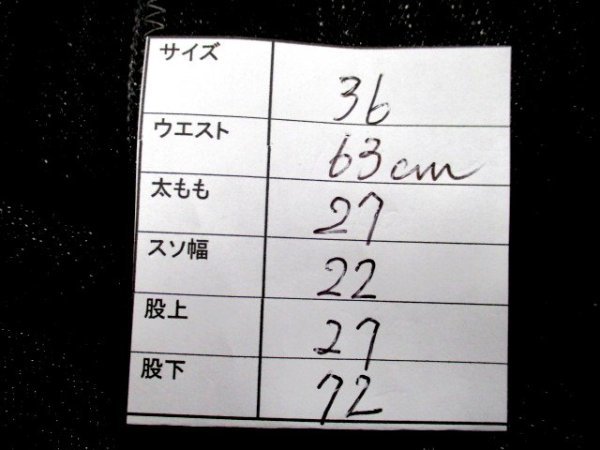 サイズ 36
ウエスト 63cm
太もも 27
スソ幅 22
股上 27
股下 72